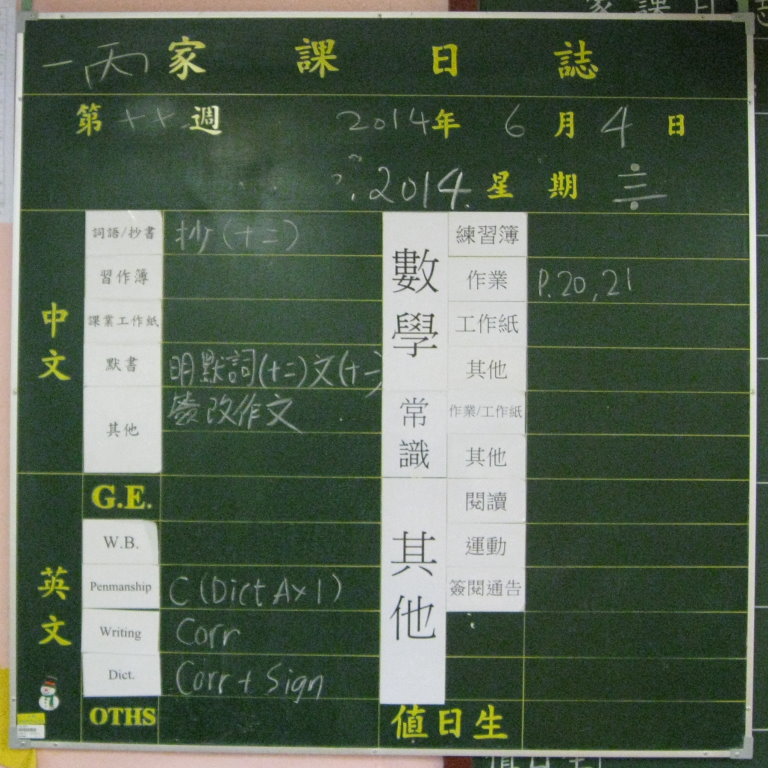 一丙 家課日誌
第 週 2014年 6月 4日
2014. 星期 三
中文
詞語/抄書 抄(十二)
習作簿
課業工作紙
默書 明默詞(十二)文(十一
其他 改作文
英文
G.E.
W.B.
Penmanship C (Dict A×1)
Writing Corr
Dict. Corr + Sign
OTHS
數學
練習簿
作業 P.20, 21
工作紙
其他
常識
作業/工作紙
其他
其他
閱讀
運動
簽閱通告
值日生
家課日